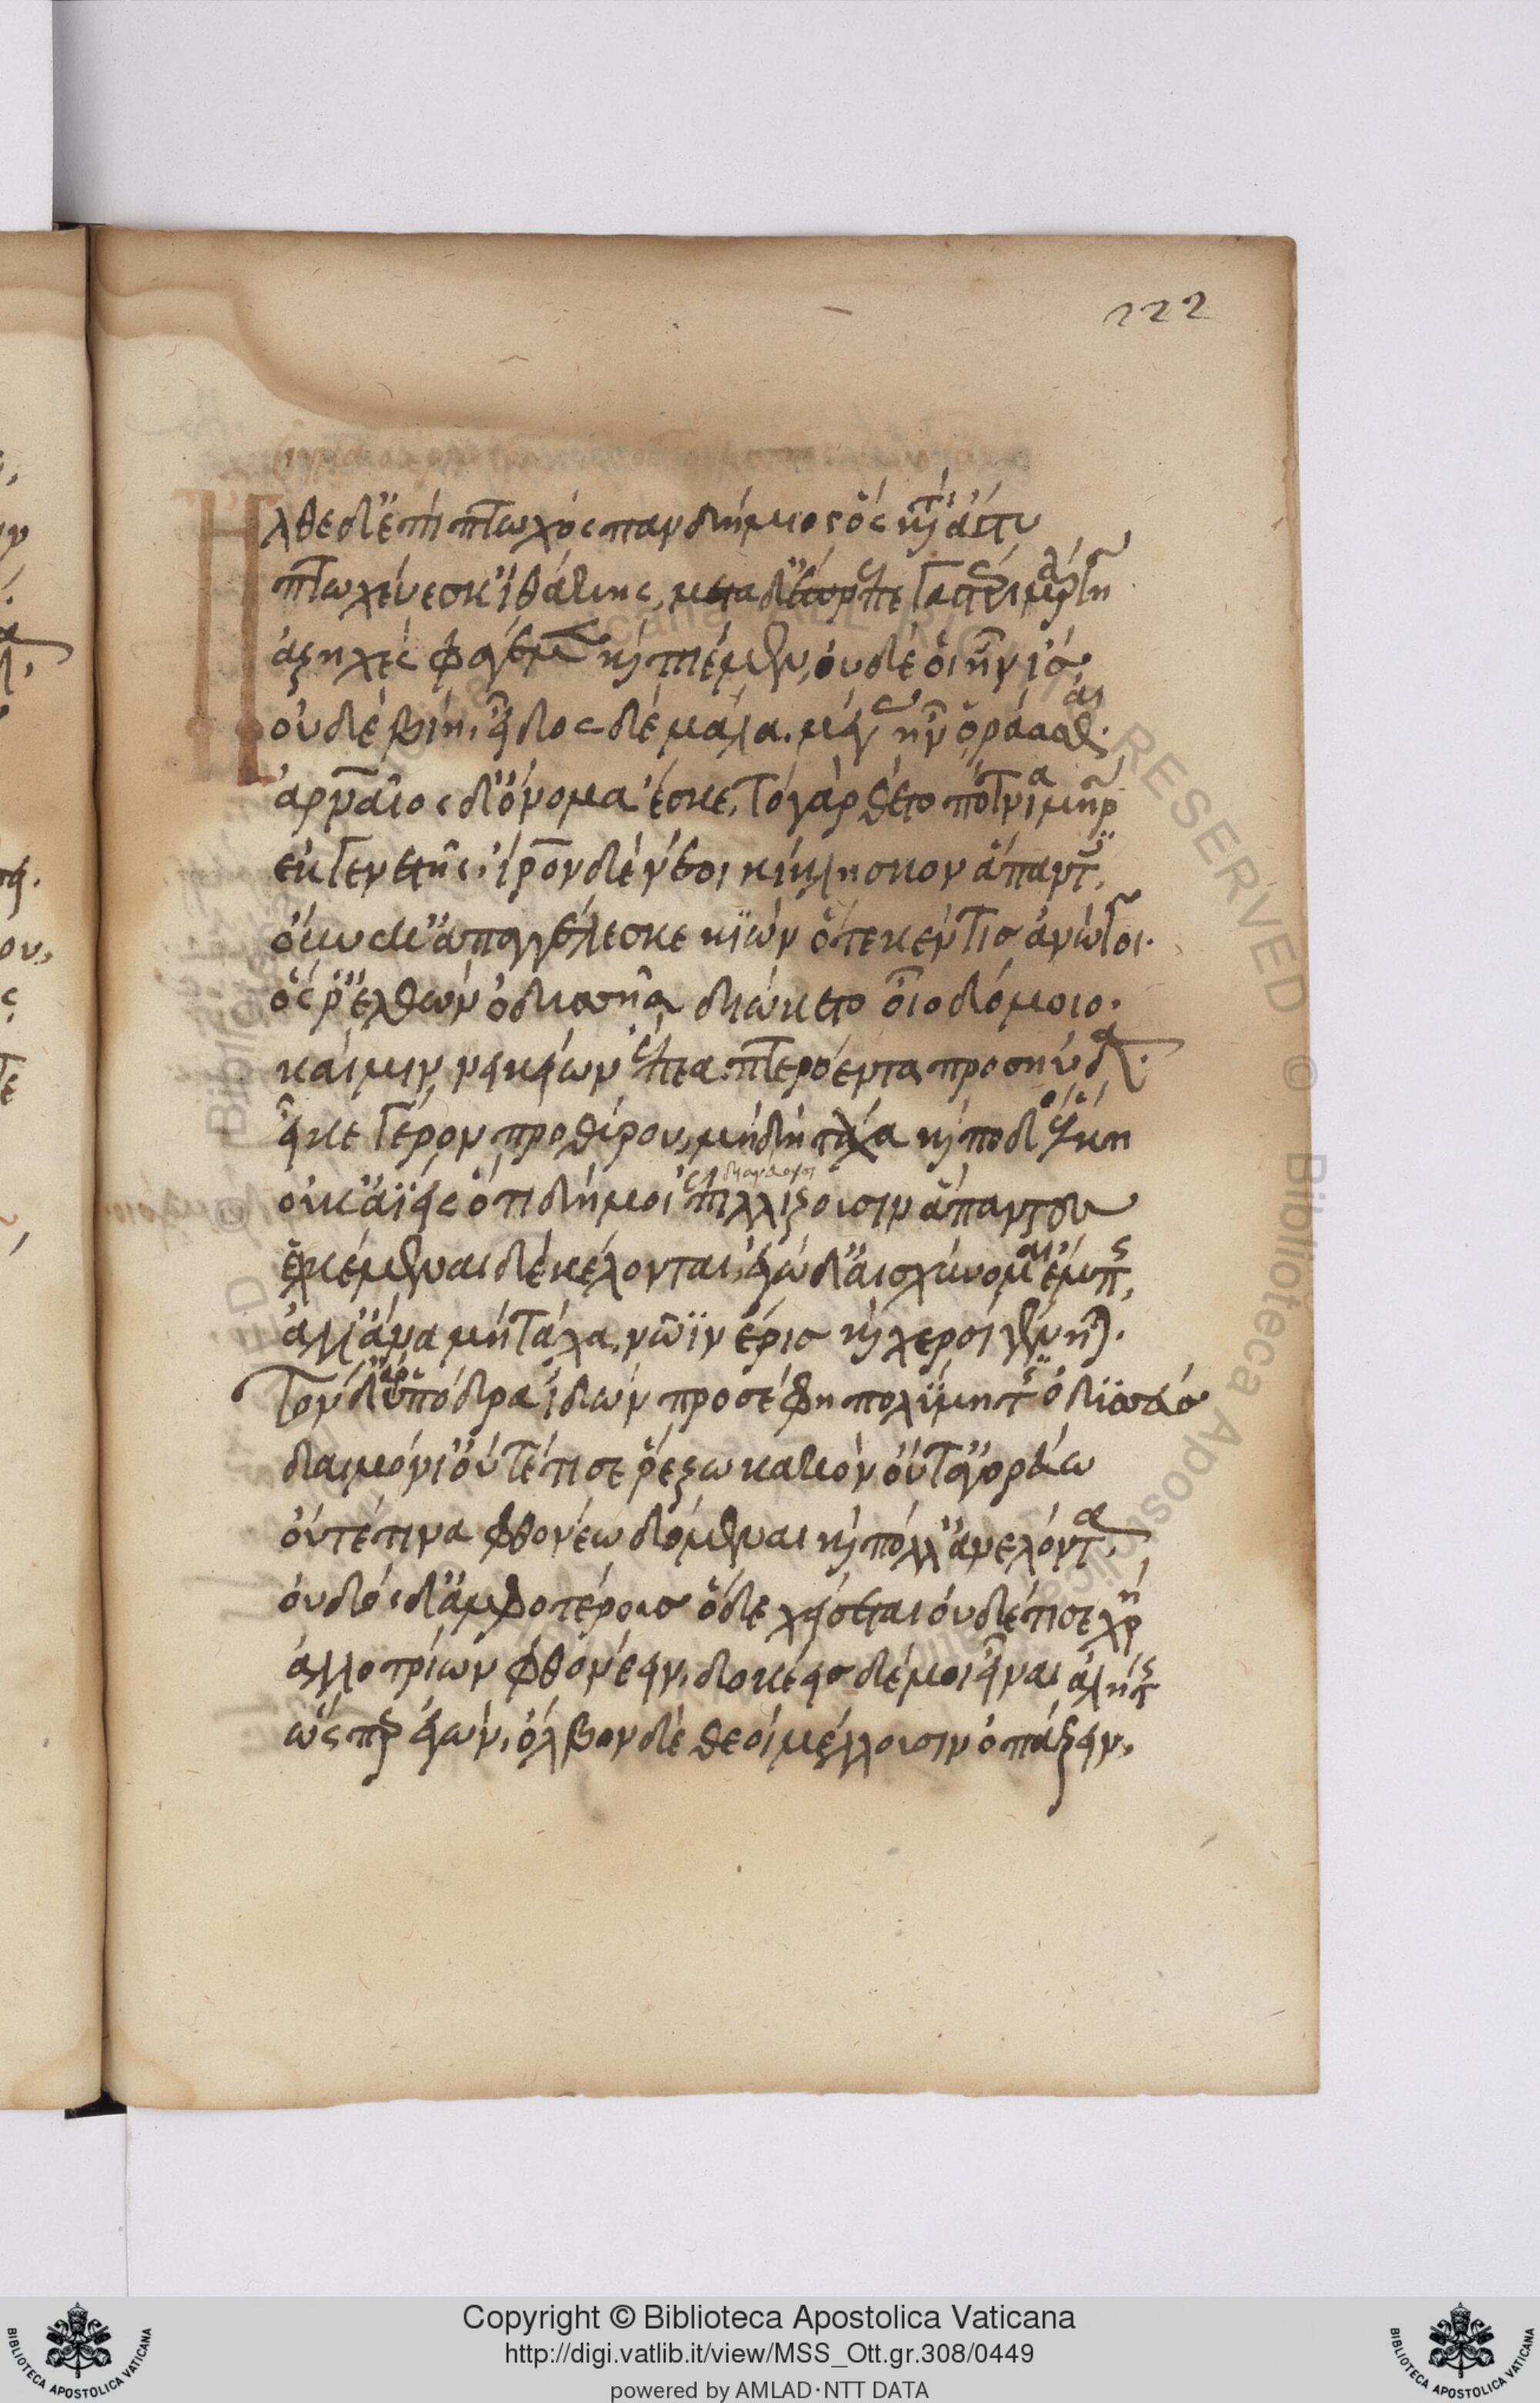 222
Ἦλθε δ' ἐπὶ πτωχὸς πανδήμιος ὃς κατὰ ἄστυ
πτωχεύεσκ' ἰθάκης, μετὰ δ' ἔπρεπε γαστέρι μάργῃ
ἀζηχὲς φαγέμεν καὶ πιέμεν, οὐδέ οἱ ἦν ἲς
οὐδὲ βίη, εἶδος δὲ μάλα μέγας ἦν ὁράασθαι.
ἀρναῖος δ' ὄνομα ἔσκε, τὸ γὰρ θέτο πότνια μήτηρ
ἐκ γενετῆς. ἶρον δὲ νέοι κίκλησκον ἅπαντες,
οὕνεκ' ἀπαγγέλεσκε κιὼν ὅτε κέν τις ἀνώγοι.
ὅς ῥ' ἐλθὼν ὀδυσῆα διώκετο οἷο δόμοιο.
καί μιν νεικείων ἔπεα πτερόεντα προσηύδα.
εἶκε γέρον προθύρου, μὴ δὴ τάχα καὶ ποδὸς ἕλκη
οὐκ ἀΐεις ὅτι δή μοι ἐπιλλίζουσιν ἅπαντες
ἑλκέμεναι δὲ κέλονται, ἐγὼ δ' αἰσχύνομαι ἔμπης,
ἀλλ' ἄνα μὴ τάχα νῶϊν ἔρις καὶ χερσὶ γένηται.
Τὸν δ' ἄρ' ὑπόδρα ἰδὼν προσέφη πολύμητις ὀδυσσεύς
δαιμόνι' οὔτέ τί σε ῥέζω κακὸν οὔτ' ἀγορεύω
οὔτέ τινα φθονέω δόμεναι καὶ πόλλ' ἀνελόντα,
οὐδὸς δ' ἀμφοτέρους ὅδε χείσεται οὐδέ τί σε χρὴ
ἀλλοτρίων φθονέειν, δοκέεις δέ μοι εἶναι ἀλήτης
ὥς περ ἐγών, ὄλβον δὲ θεοὶ μέλλουσιν ὀπάζειν,
Copyright © Biblioteca Apostolica Vaticana
http://digi.vatlib.it/view/MSS_Ott.gr.308/0449
powered by AMLAD·NTT DATA